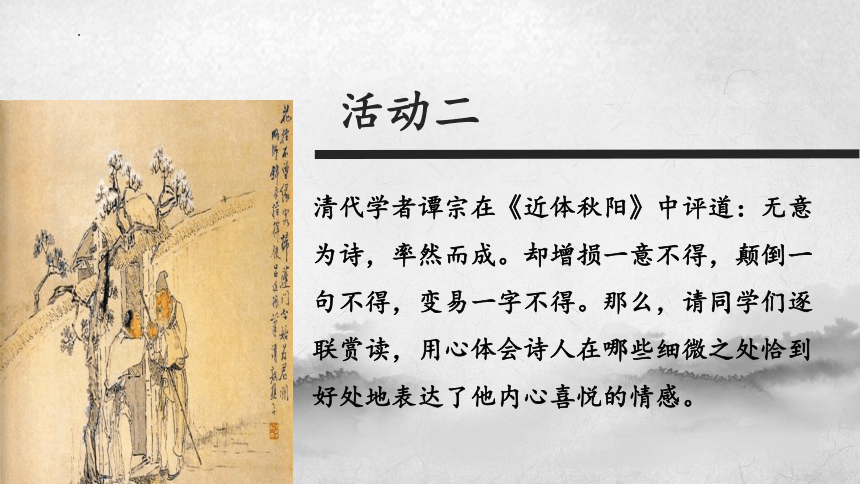 活动二
清代学者谭宗在《近体秋阳》中评道：无意
为诗，率然而成。却增损一意不得，颠倒一
句不得，变易一字不得。那么，请同学们逐
联赏读，用心体会诗人在哪些细微之处恰到
好处地表达了他内心喜悦的情感。
花径不曾缘客扫蓬门今始为君开